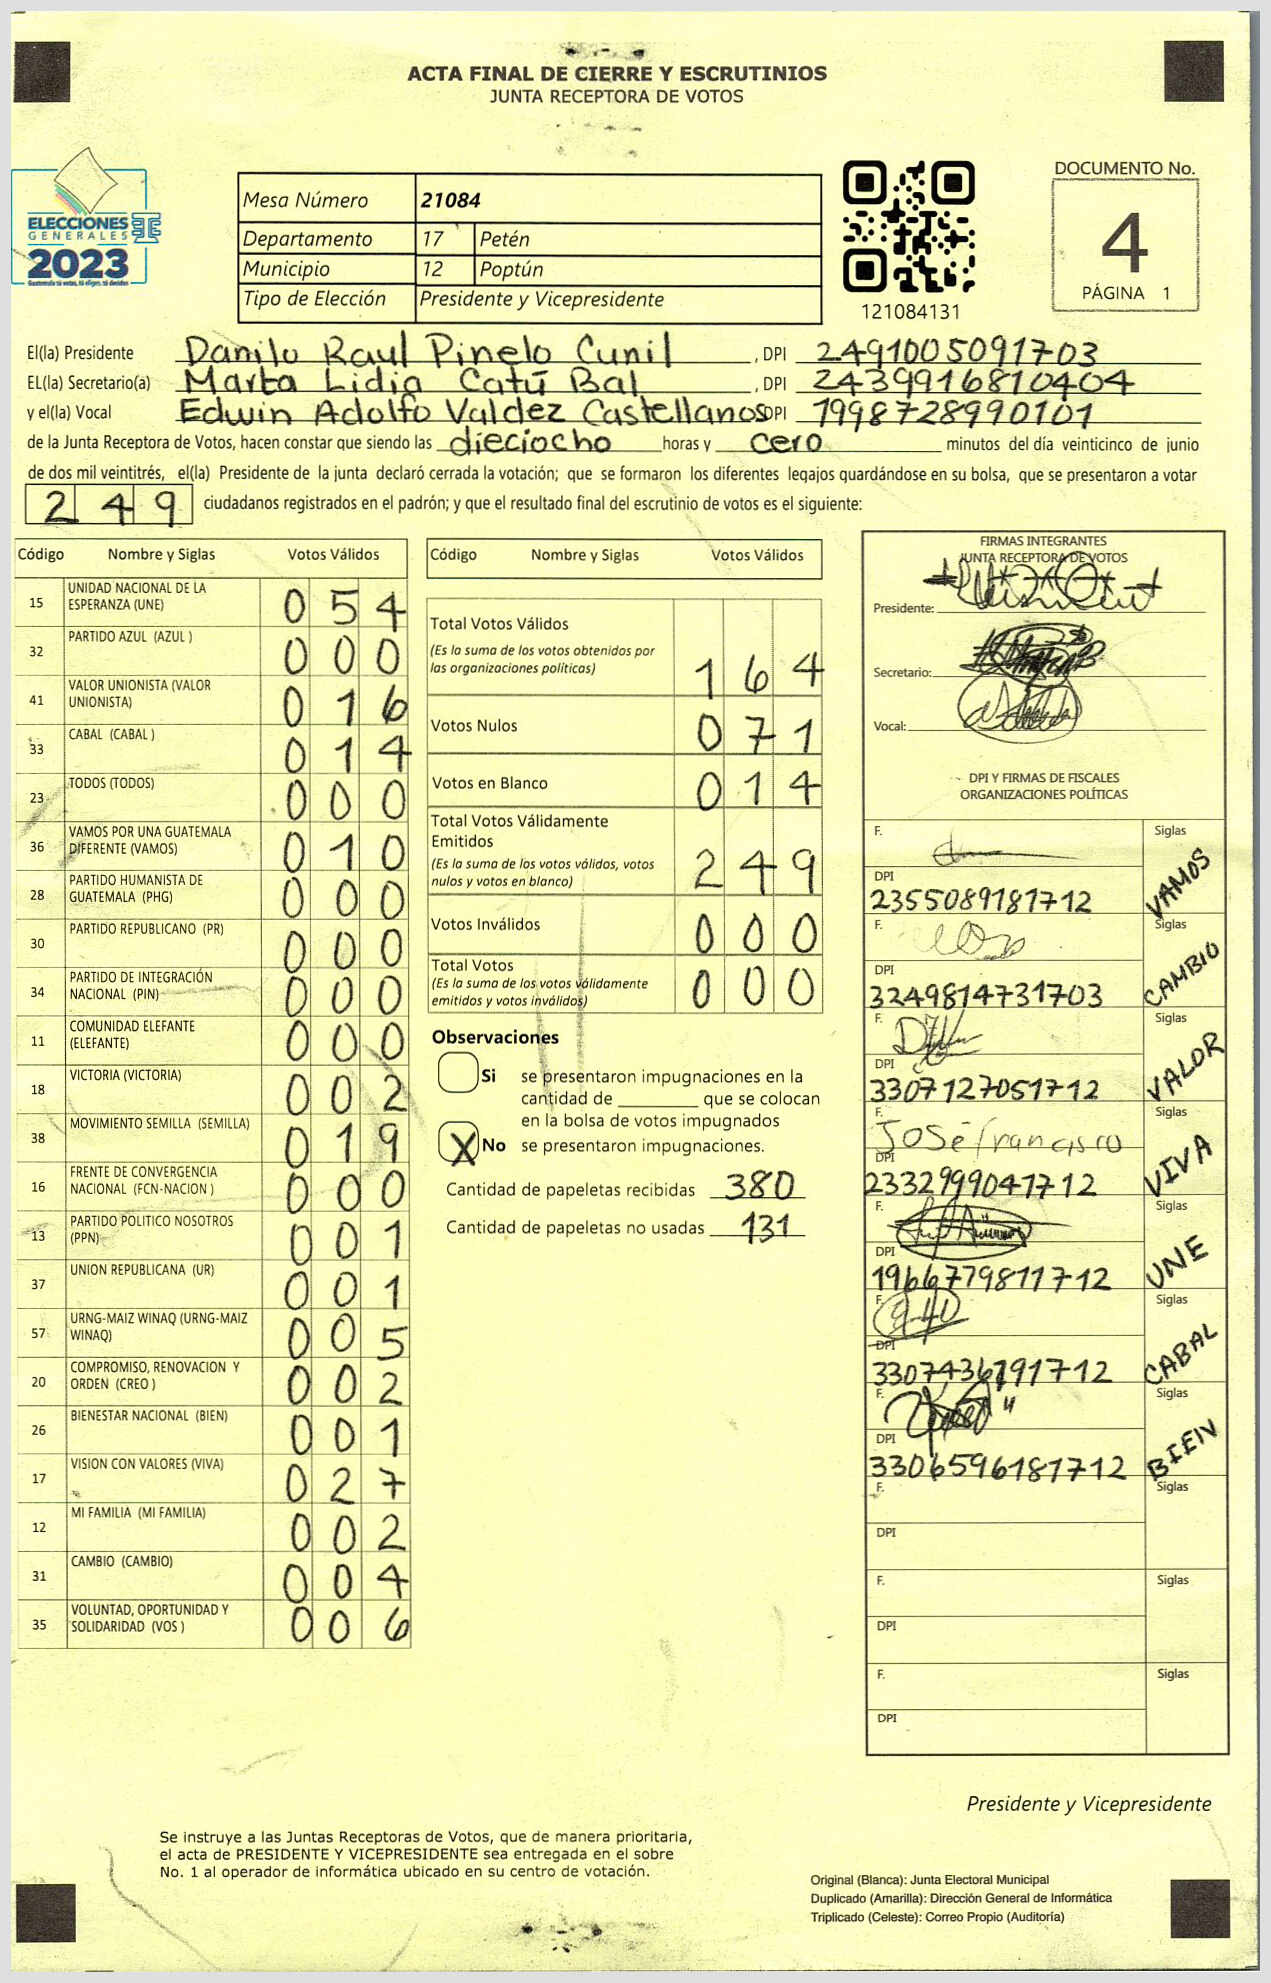 ACTA FINAL DE CIERRE Y ESCRUTINIOS
JUNTA RECEPTORA DE VOTOS
ELECCIONES
GENERALES
2023
Guatemala tú votas, tú eliges, tú decides
Mesa Número 21084
Departamento 17 Petén
Municipio 12 Poptún
Tipo de Elección Presidente y Vicepresidente
121084131
DOCUMENTO No.
4
PÁGINA 1
El(la) Presidente Danilo Raul Pinelo Cunil , DPI 2491005091703
EL(la) Secretario(a) Marta Lidia Catú Bal , DPI 2439916810404
y el(la) Vocal Edwin Adolfo Valdez Castellanos DPI 1998728990101
de la Junta Receptora de Votos, hacen constar que siendo las dieciocho horas y cero minutos del día veinticinco de junio
de dos mil veintitrés, el(la) Presidente de la junta declaró cerrada la votación; que se formaron los diferentes legajos quardándose en su bolsa, que se presentaron a votar
249 ciudadanos registrados en el padrón; y que el resultado final del escrutinio de votos es el siguiente:
Código Nombre y Siglas Votos Válidos
15 UNIDAD NACIONAL DE LA ESPERANZA (UNE) 054
32 PARTIDO AZUL (AZUL ) 000
41 VALOR UNIONISTA (VALOR UNIONISTA) 016
33 CABAL (CABAL ) 014
23 TODOS (TODOS) 000
36 VAMOS POR UNA GUATEMALA DIFERENTE (VAMOS) 010
28 PARTIDO HUMANISTA DE GUATEMALA (PHG) 000
30 PARTIDO REPUBLICANO (PR) 000
34 PARTIDO DE INTEGRACIÓN NACIONAL (PIN) 000
11 COMUNIDAD ELEFANTE (ELEFANTE) 000
18 VICTORIA (VICTORIA) 002
38 MOVIMIENTO SEMILLA (SEMILLA) 019
16 FRENTE DE CONVERGENCIA NACIONAL (FCN-NACION ) 000
13 PARTIDO POLITICO NOSOTROS (PPN) 001
37 UNION REPUBLICANA (UR) 001
57 URNG-MAIZ WINAQ (URNG-MAIZ WINAQ) 005
20 COMPROMISO, RENOVACION Y ORDEN (CREO ) 002
26 BIENESTAR NACIONAL (BIEN) 001
17 VISION CON VALORES (VIVA) 027
12 MI FAMILIA (MI FAMILIA) 002
31 CAMBIO (CAMBIO) 004
35 VOLUNTAD, OPORTUNIDAD Y SOLIDARIDAD (VOS ) 006
Código Nombre y Siglas Votos Válidos
Total Votos Válidos
(Es la suma de los votos obtenidos por
las organizaciones políticas) 164
Votos Nulos 071
Votos en Blanco 014
Total Votos Válidamente
Emitidos
(Es la suma de los votos válidos, votos
nulos y votos en blanco) 249
Votos Inválidos 000
Total Votos
(Es la suma de los votos válidamente
emitidos y votos inválidos) 000
Observaciones
Si se presentaron impugnaciones en la
cantidad de ________ que se colocan
en la bolsa de votos impugnados
X No se presentaron impugnaciones.
Cantidad de papeletas recibidas 380
Cantidad de papeletas no usadas 131
FIRMAS INTEGRANTES
JUNTA RECEPTORA DE VOTOS
Presidente:
Secretario:
Vocal:
DPI Y FIRMAS DE FISCALES
ORGANIZACIONES POLÍTICAS
F. Siglas
DPI 2355089181712 VAMOS
F. Siglas
DPI 3249814731703 CAMBIO
F. Siglas
DPI 3307127051712 VALOR
F. José francisco Siglas
DPI 2332999041712 VIVA
F. Siglas
DPI 1966779811712 UNE
F. Siglas
DPI 3307436191712 CABAL
F. Siglas
DPI 3306596181712 BIEN
F. Siglas
DPI
F. Siglas
DPI
F. Siglas
DPI
Presidente y Vicepresidente
Se instruye a las Juntas Receptoras de Votos, que de manera prioritaria,
el acta de PRESIDENTE Y VICEPRESIDENTE sea entregada en el sobre
No. 1 al operador de informática ubicado en su centro de votación.
Original (Blanca): Junta Electoral Municipal
Duplicado (Amarilla): Dirección General de Informática
Triplicado (Celeste): Correo Propio (Auditoría)